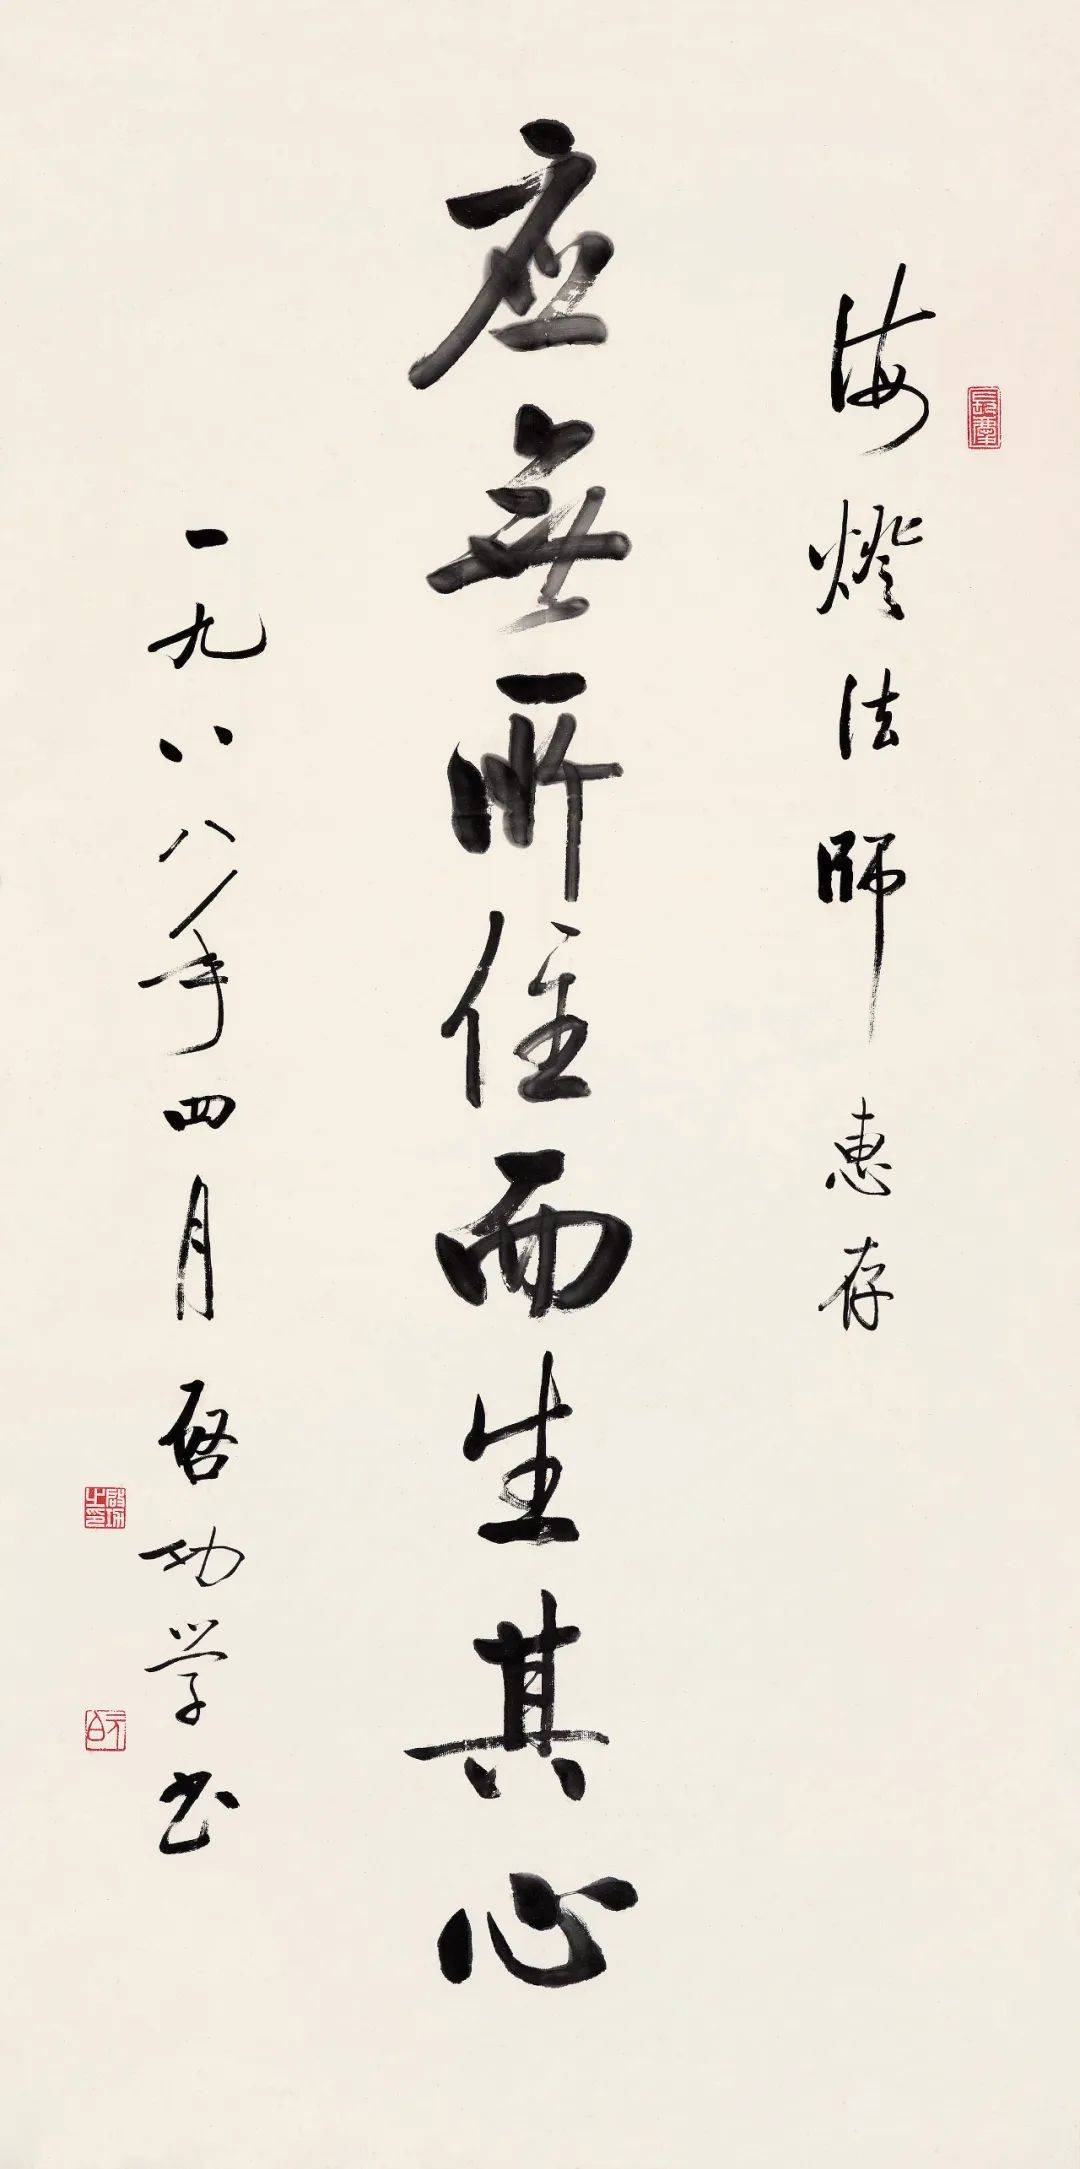 海燈法師 惠存
应無所住而生其心
一九八八年四月 启功学书